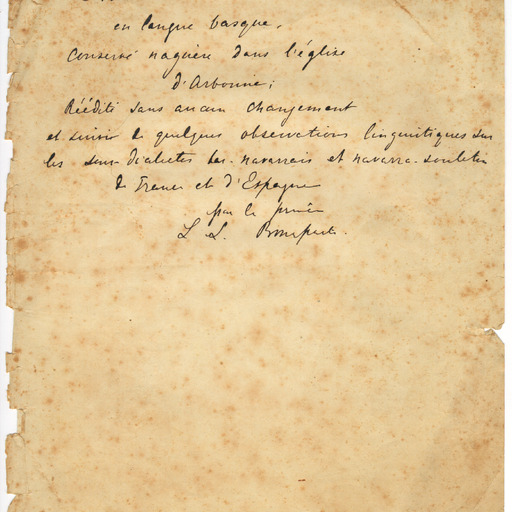 en langue basque,
Conservé naguère dans l'église
d'Arbonne;
Réédité sans aucun changement
et suivi de quelques observations linguistiques sur
les sous-dialectes bas-navarrais et navarro-souletin
de France et d'Espagne
par le prince
L. L. Bonaparte.